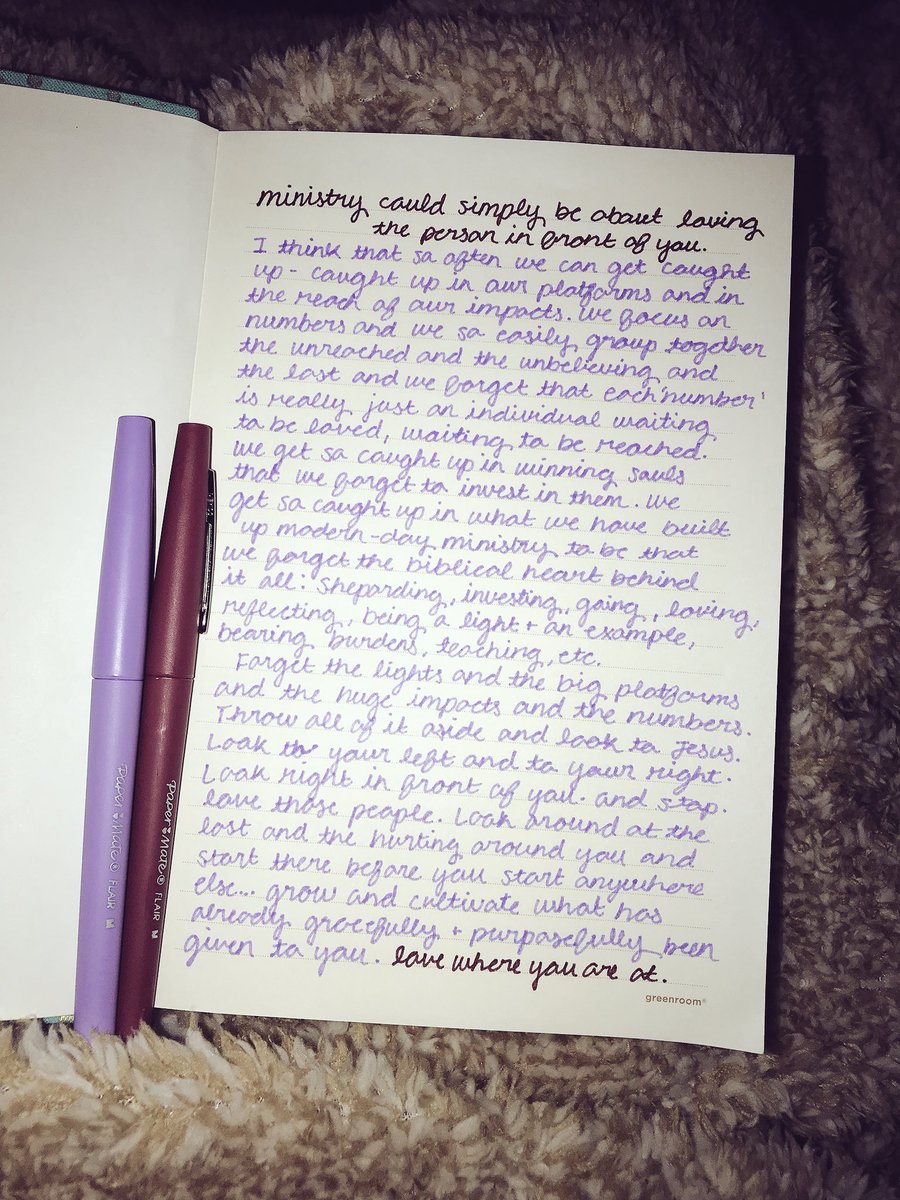 ministry could simply be about loving
the person in front of you.
I think that so often we can get caught
up - caught up in our platforms and in
the reach of our impacts. We focus on
numbers and we so easily group together
the unreached and the unbelieving and
the lost and we forget that each 'number'
is really just an individual waiting
to be loved, waiting to be reached.
We get so caught up in winning souls
that we forget to invest in them. We
get so caught up in what we have built
up modern-day ministry to be that
we forget the biblical heart behind
it all: Sheparding, investing, going, loving,
reflecting, being a light + an example,
bearing burdens, teaching, etc.
Forget the lights and the big platforms
and the huge impacts and the numbers.
Throw all of it aside and look to Jesus.
Look to your left and to your right.
Look right in front of you. and stop.
love those people. Look around at the
lost and the hurting around you and
start there before you start anywhere
else... grow and cultivate what has
already gracefully + purposefully been
given to you. love where you are at.
greenroom®
Paper Mate® FLAIR M
Paper Mate® FLAIR M